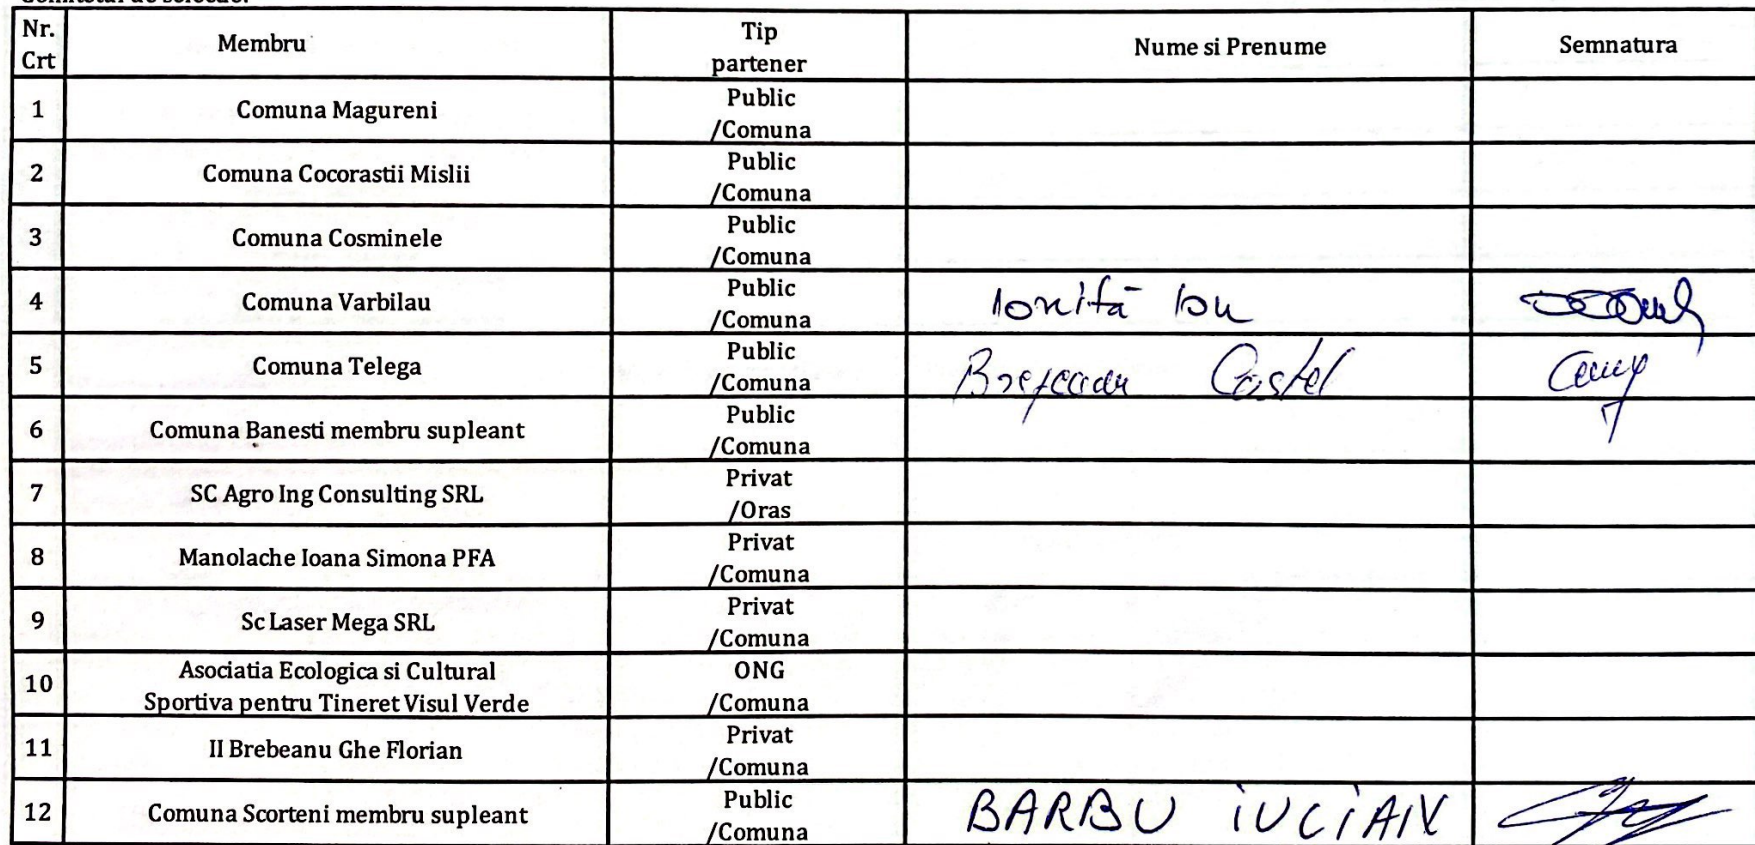 Nr. Crt Membru Tip partener Nume si Prenume Semnatura
1 Comuna Magureni Public /Comuna
2 Comuna Cocorastii Mislii Public /Comuna
3 Comuna Cosminele Public /Comuna
4 Comuna Varbilau Public /Comuna Ioniţă Ion
5 Comuna Telega Public /Comuna Costel
6 Comuna Banesti membru supleant Public /Comuna
7 SC Agro Ing Consulting SRL Privat /Oras
8 Manolache Ioana Simona PFA Privat /Comuna
9 Sc Laser Mega SRL Privat /Comuna
10 Asociatia Ecologica si Cultural Sportiva pentru Tineret Visul Verde ONG /Comuna
11 II Brebeanu Ghe Florian Privat /Comuna
12 Comuna Scorteni membru supleant Public /Comuna BARBU